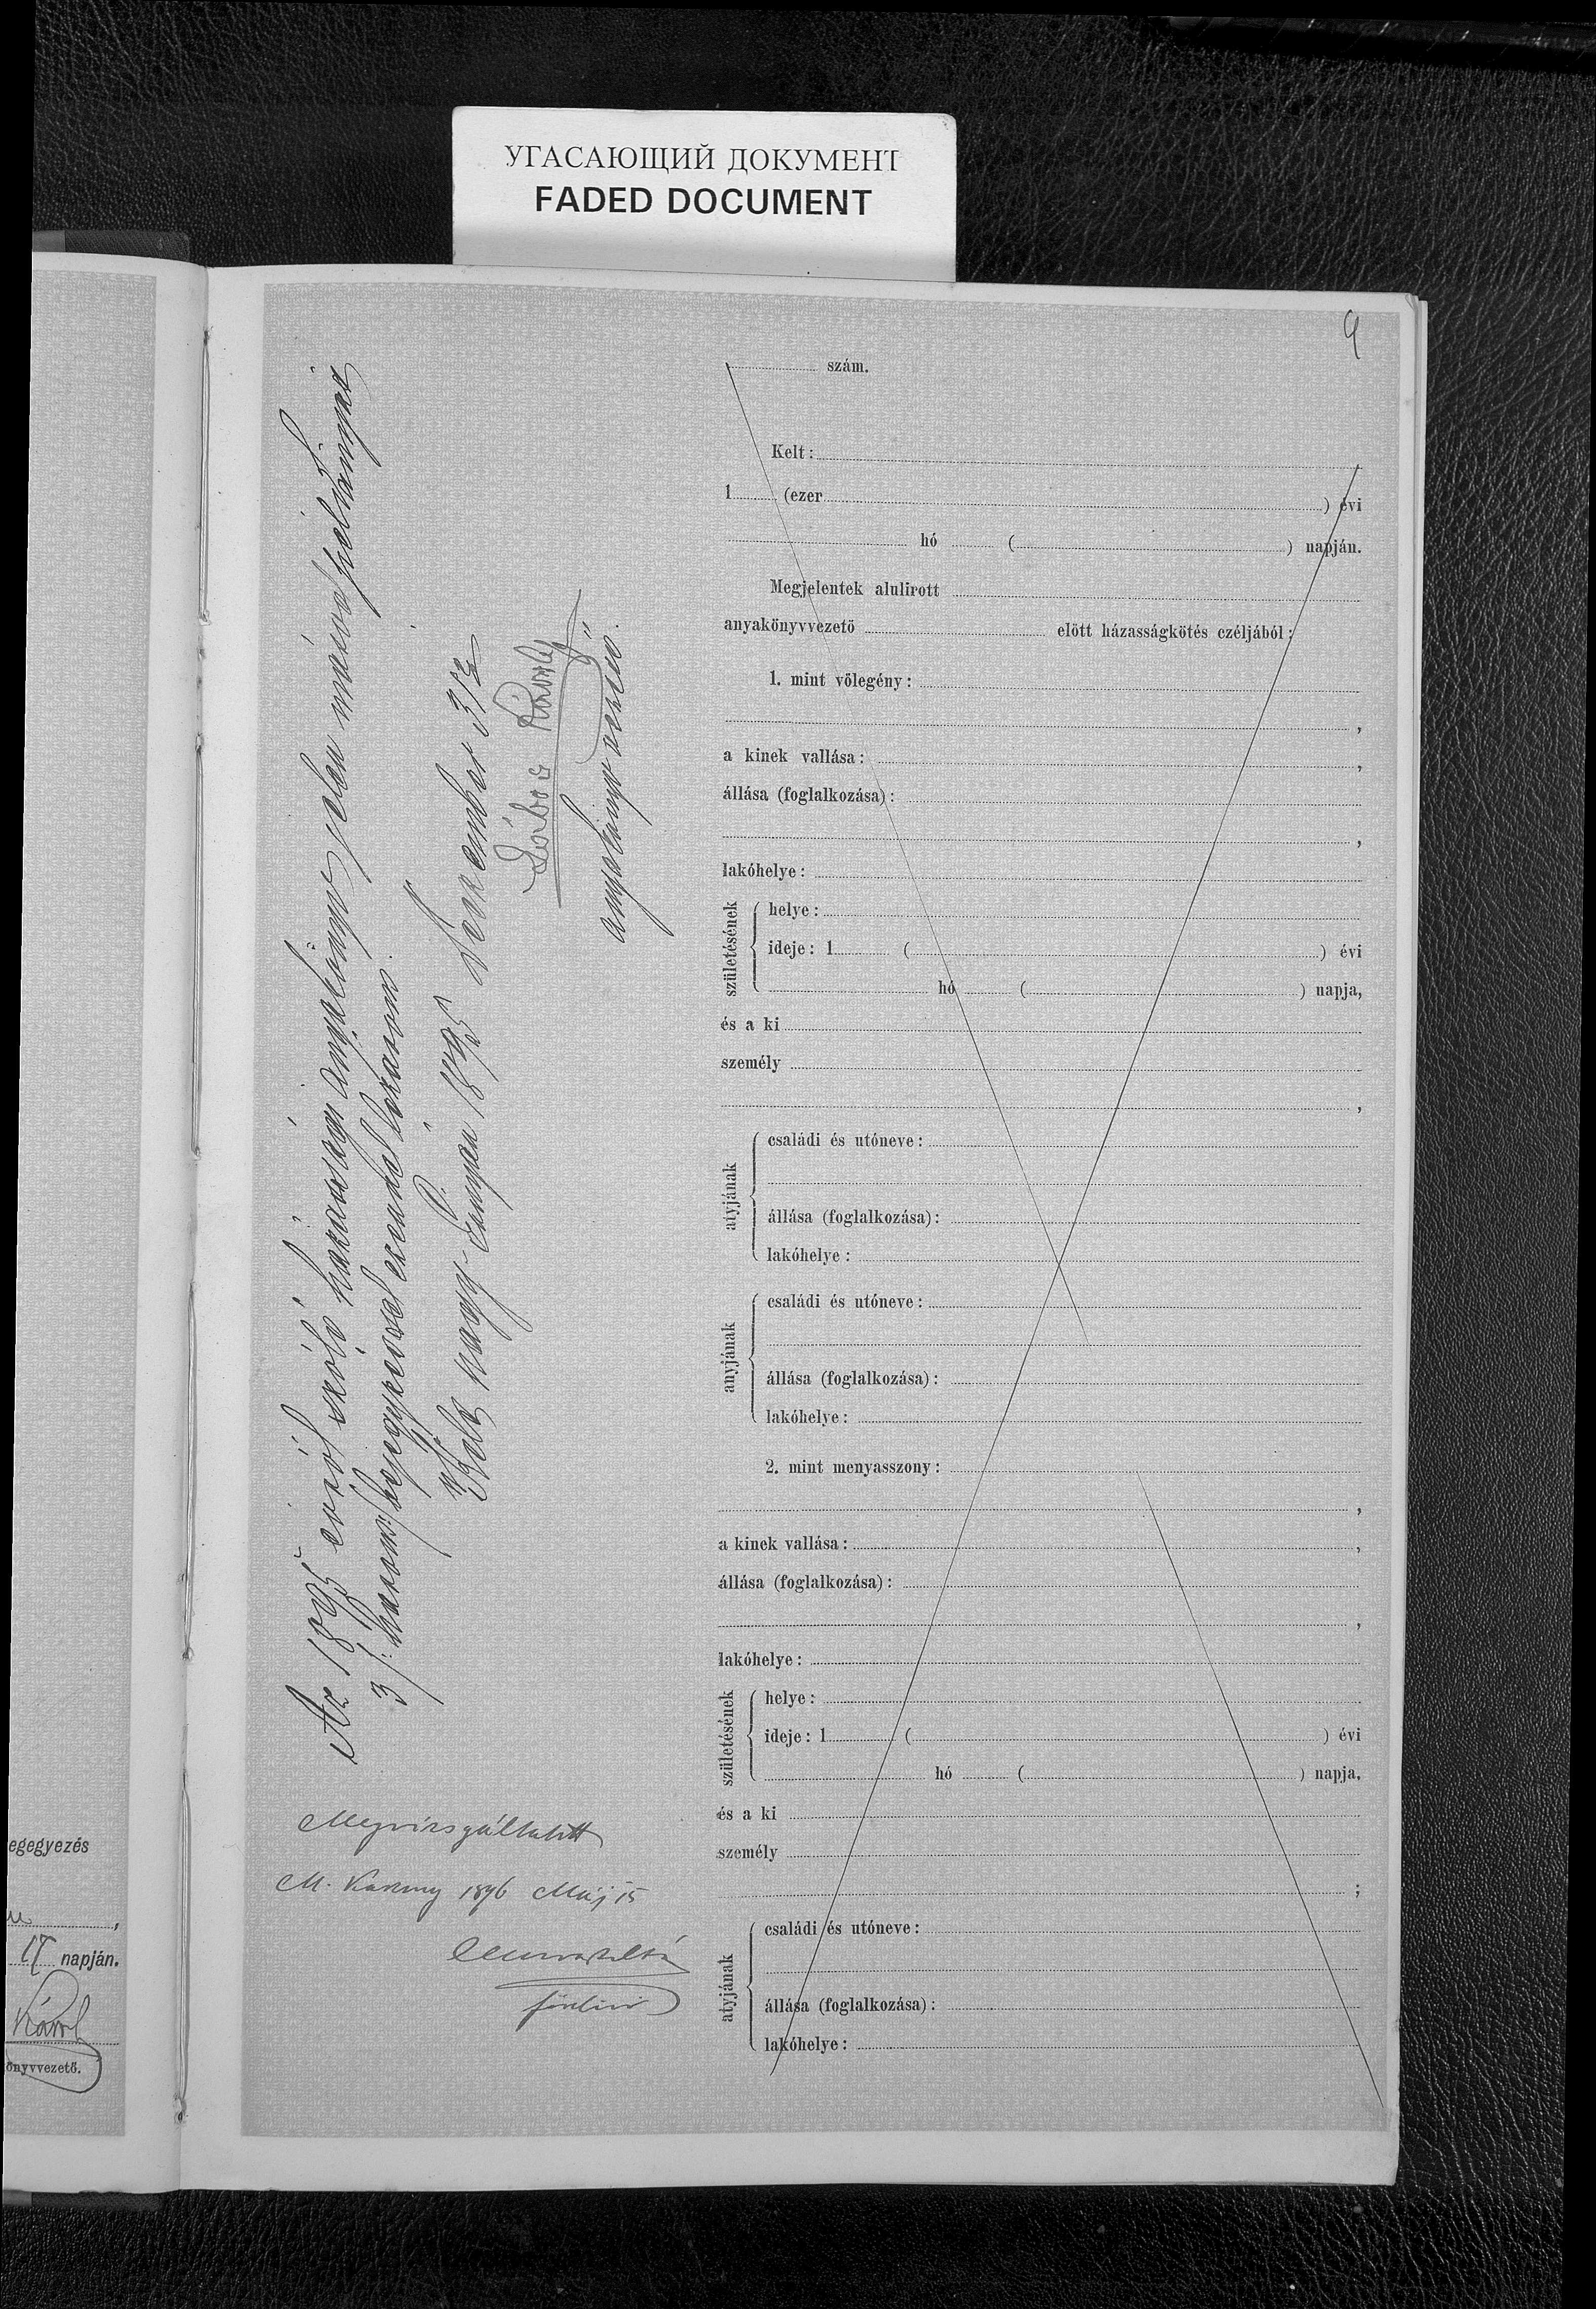 УГАСАЮЩИЙ ДОКУМЕНТ
FADED DOCUMENT
9
szám.
Kelt:
1 (ezer ) évi
hó ( ) napján.
Megjelentek alulirott
anyakönyvvezető előtt házasságkötés czéljából:
1. mint vőlegény:
,
a kinek vallása: ,
állása (foglalkozása):
,
lakóhelye:
születésének
helye:
ideje: 1 ( ) évi
hó ( ) napja,
és a ki
személy
,
atyjának
családi és utóneve:
állása (foglalkozása):
lakóhelye:
anyjának
családi és utóneve:
állása (foglalkozása):
lakóhelye:
2. mint menyasszony:
,
a kinek vallása: ,
állása (foglalkozása):
,
lakóhelye:
születésének
helye:
ideje: 1 ( ) évi
hó ( ) napja,
és a ki
személy
;
atyjának
családi és utóneve:
állása (foglalkozása):
lakóhelye:
Az 1895 évről szóló házassági anyakönyv jelen másod példányát
3 /: három :/ bejegyzéssel ezennel lezárom.
Kelt Nagy- 1895 December 31
Károly
anyakönyvvezető.
Megvizsgáltatott
M. 1896 Máj 15
egegyezés
,
17 napján.
Károly
önyvvezető.